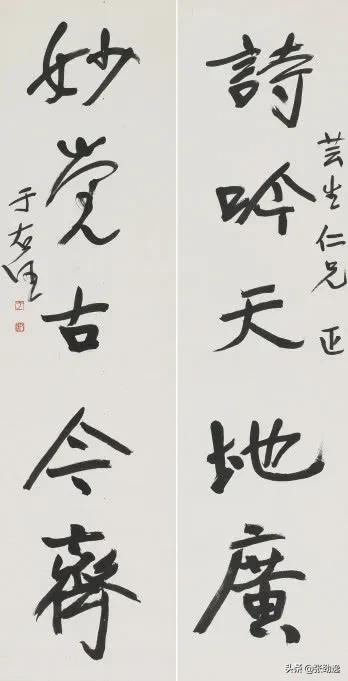 芸生仁兄 正
詩吟天地廣
妙覺古今齊
于右任
头条 @张劲逸